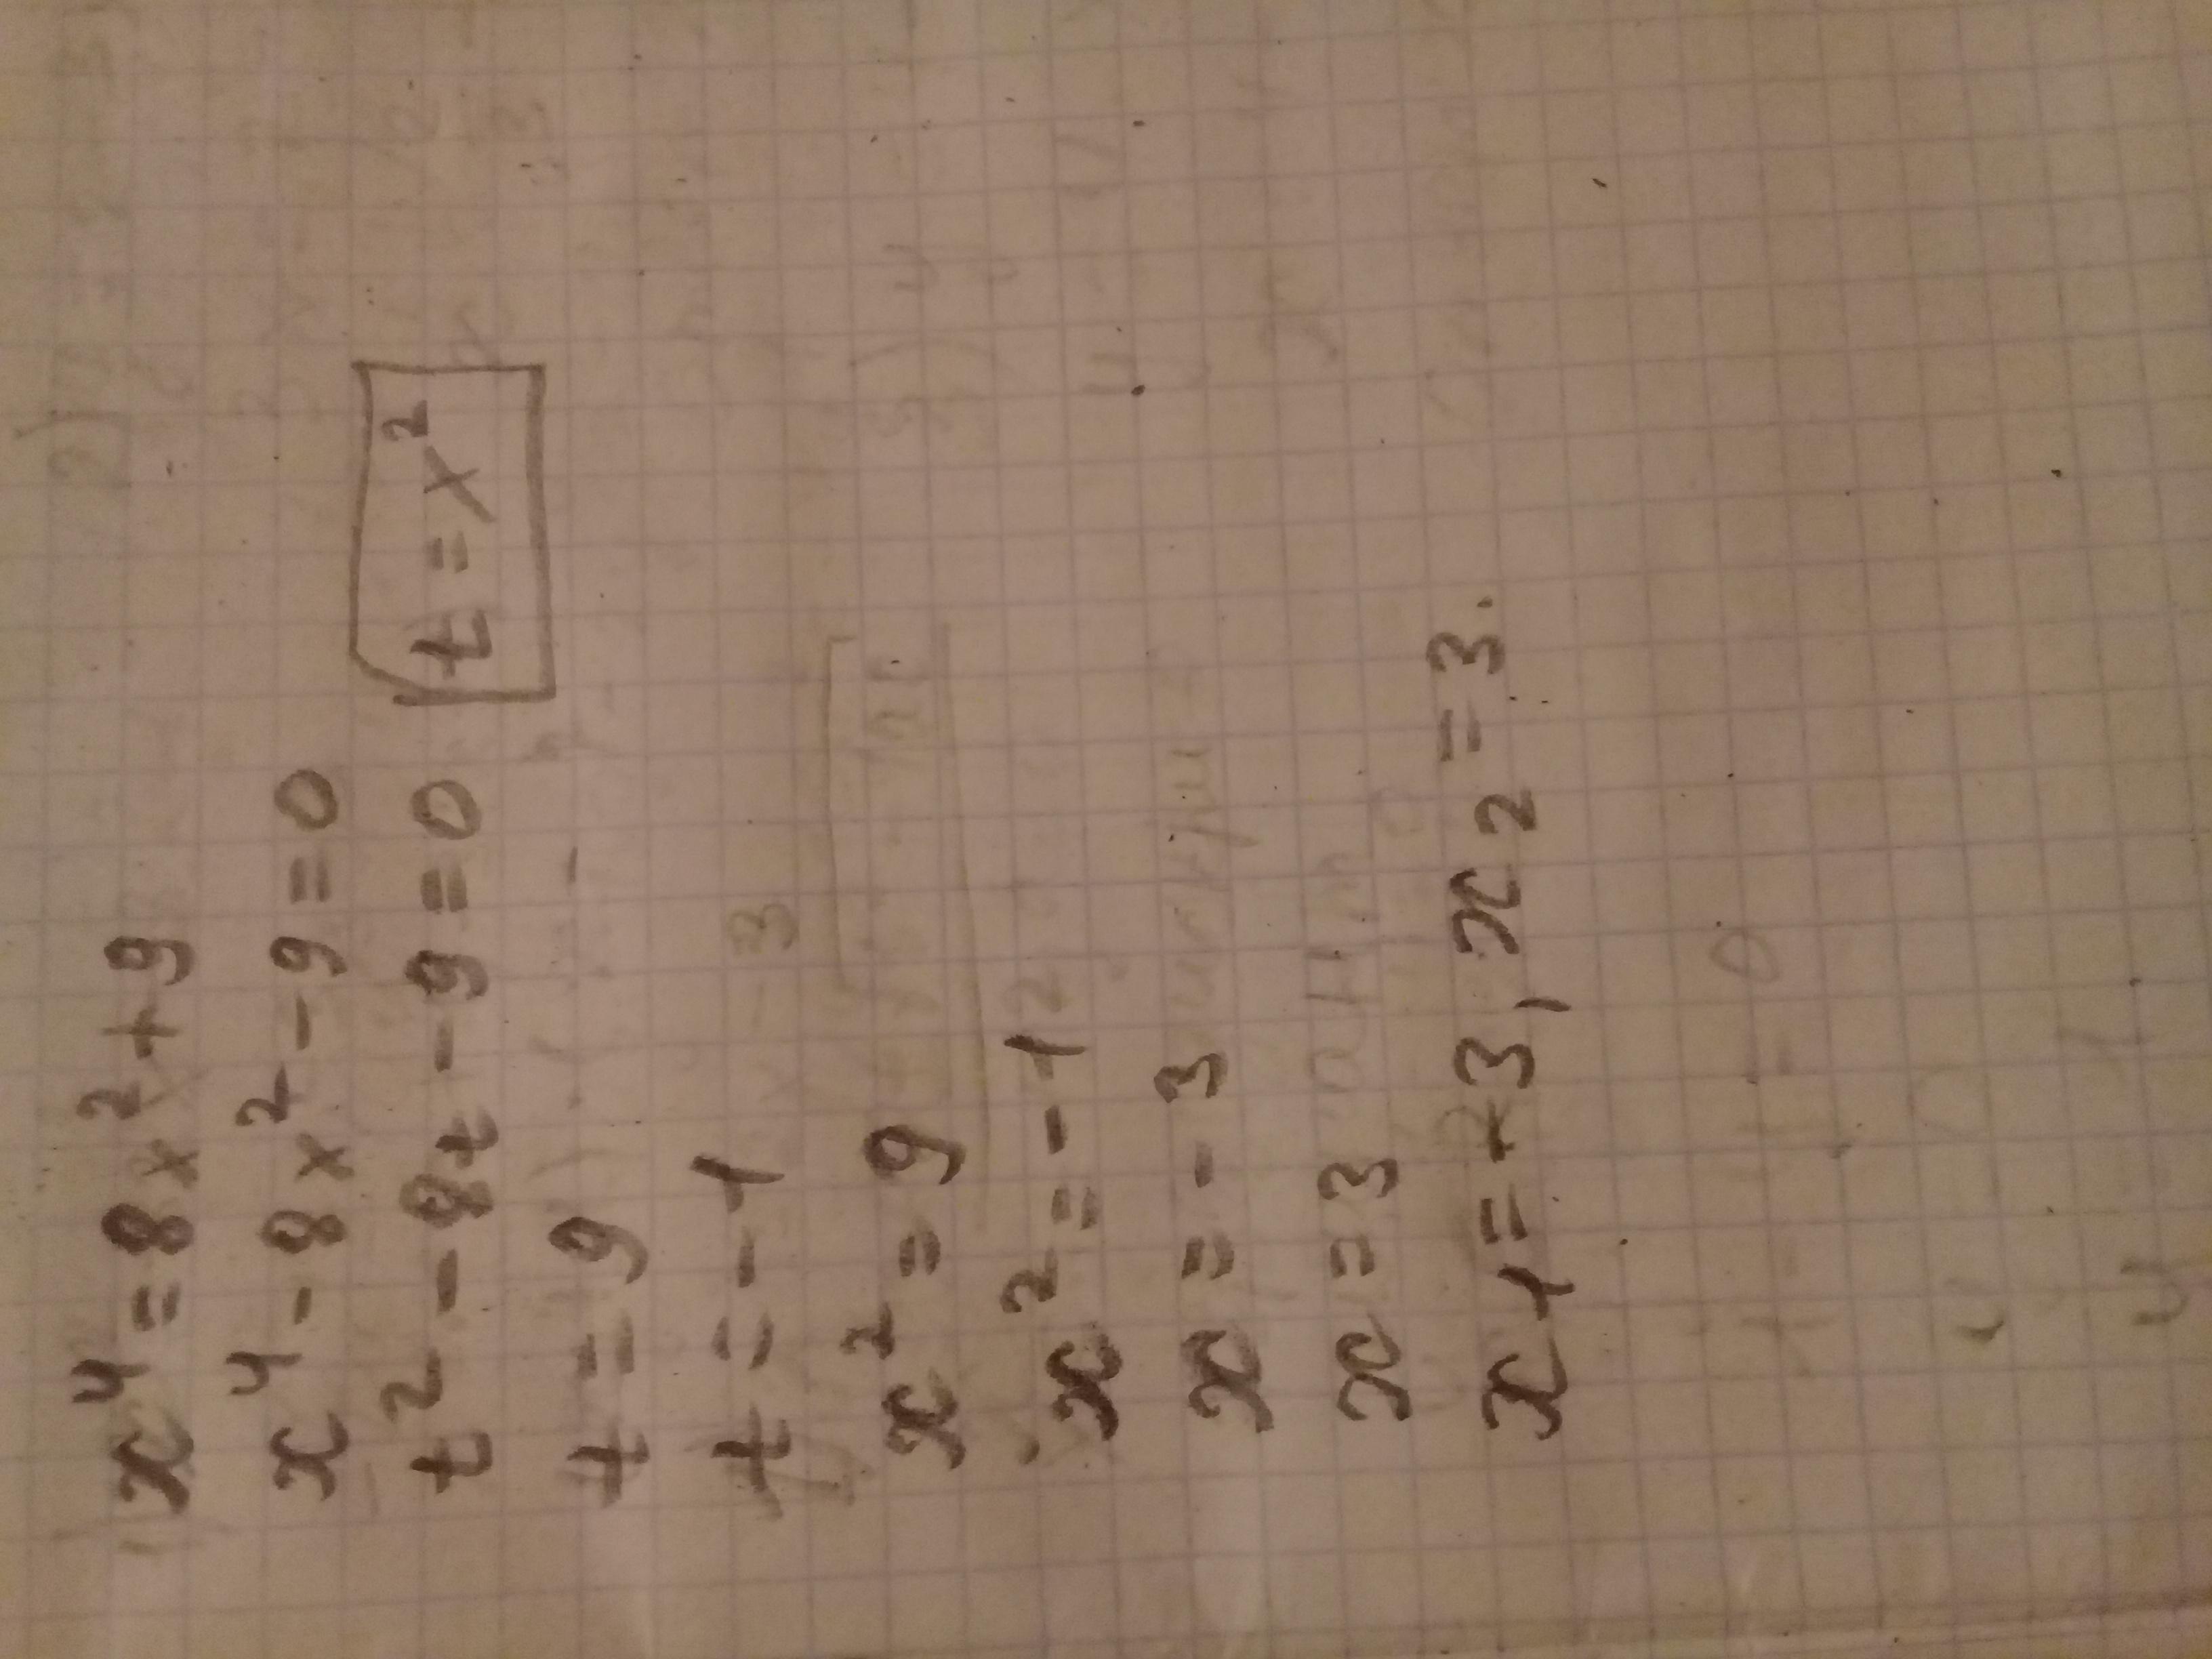 x⁴ = 8x² + 9
x⁴ - 8x² - 9 = 0
t² - 8t - 9 = 0
t = x²
t = 9
t = -1
x² = 9
x² = -1
x = -3
x = 3
x1 = -3, x2 = 3.